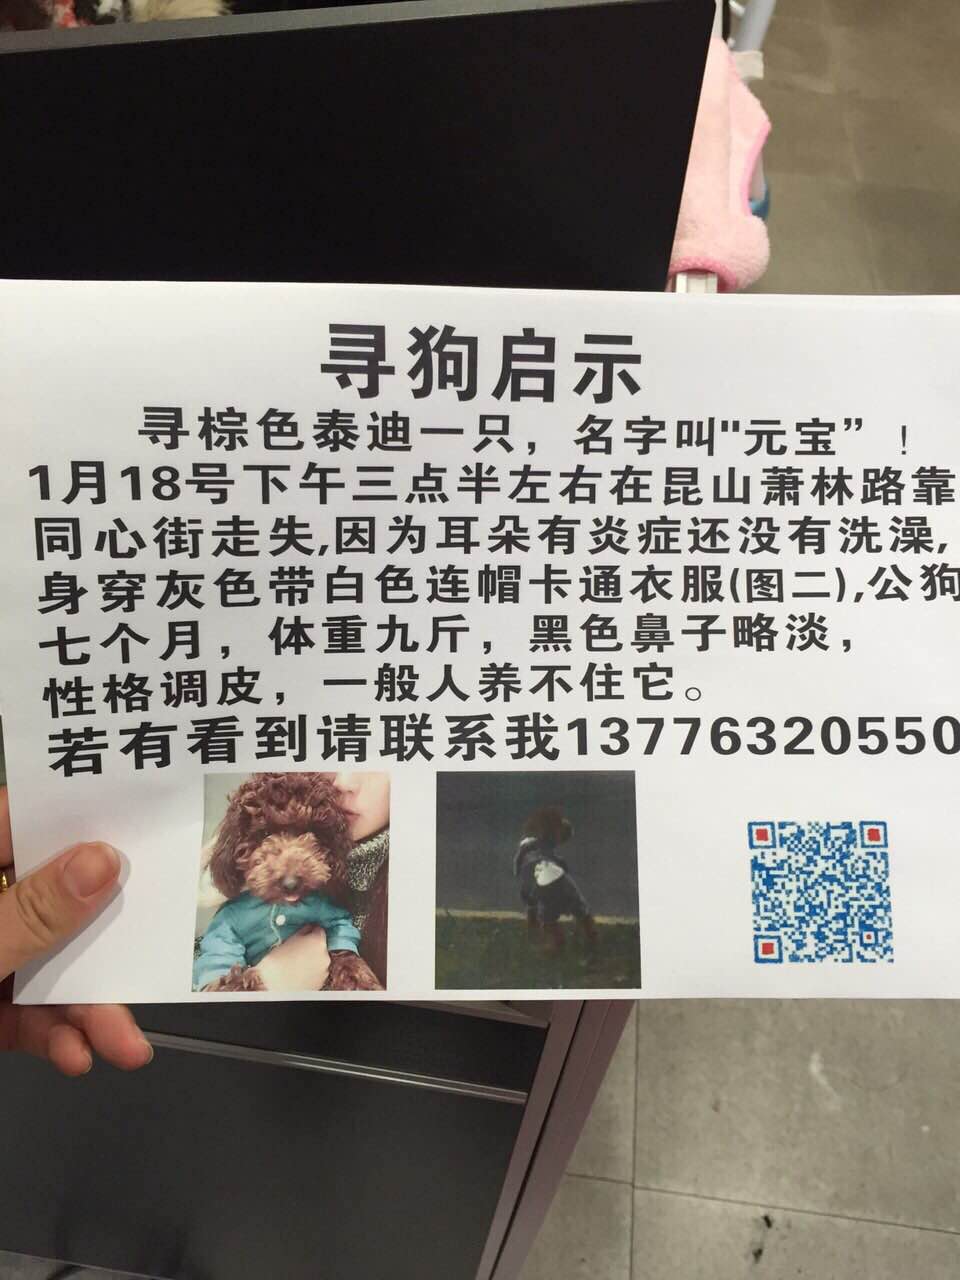 寻狗启示
寻棕色泰迪一只，名字叫"元宝”！
1月18号下午三点半左右在昆山萧林路靠
同心街走失,因为耳朵有炎症还没有洗澡,
身穿灰色带白色连帽卡通衣服(图二),公狗
七个月，体重九斤，黑色鼻子略淡，
性格调皮，一般人养不住它。
若有看到请联系我13776320550